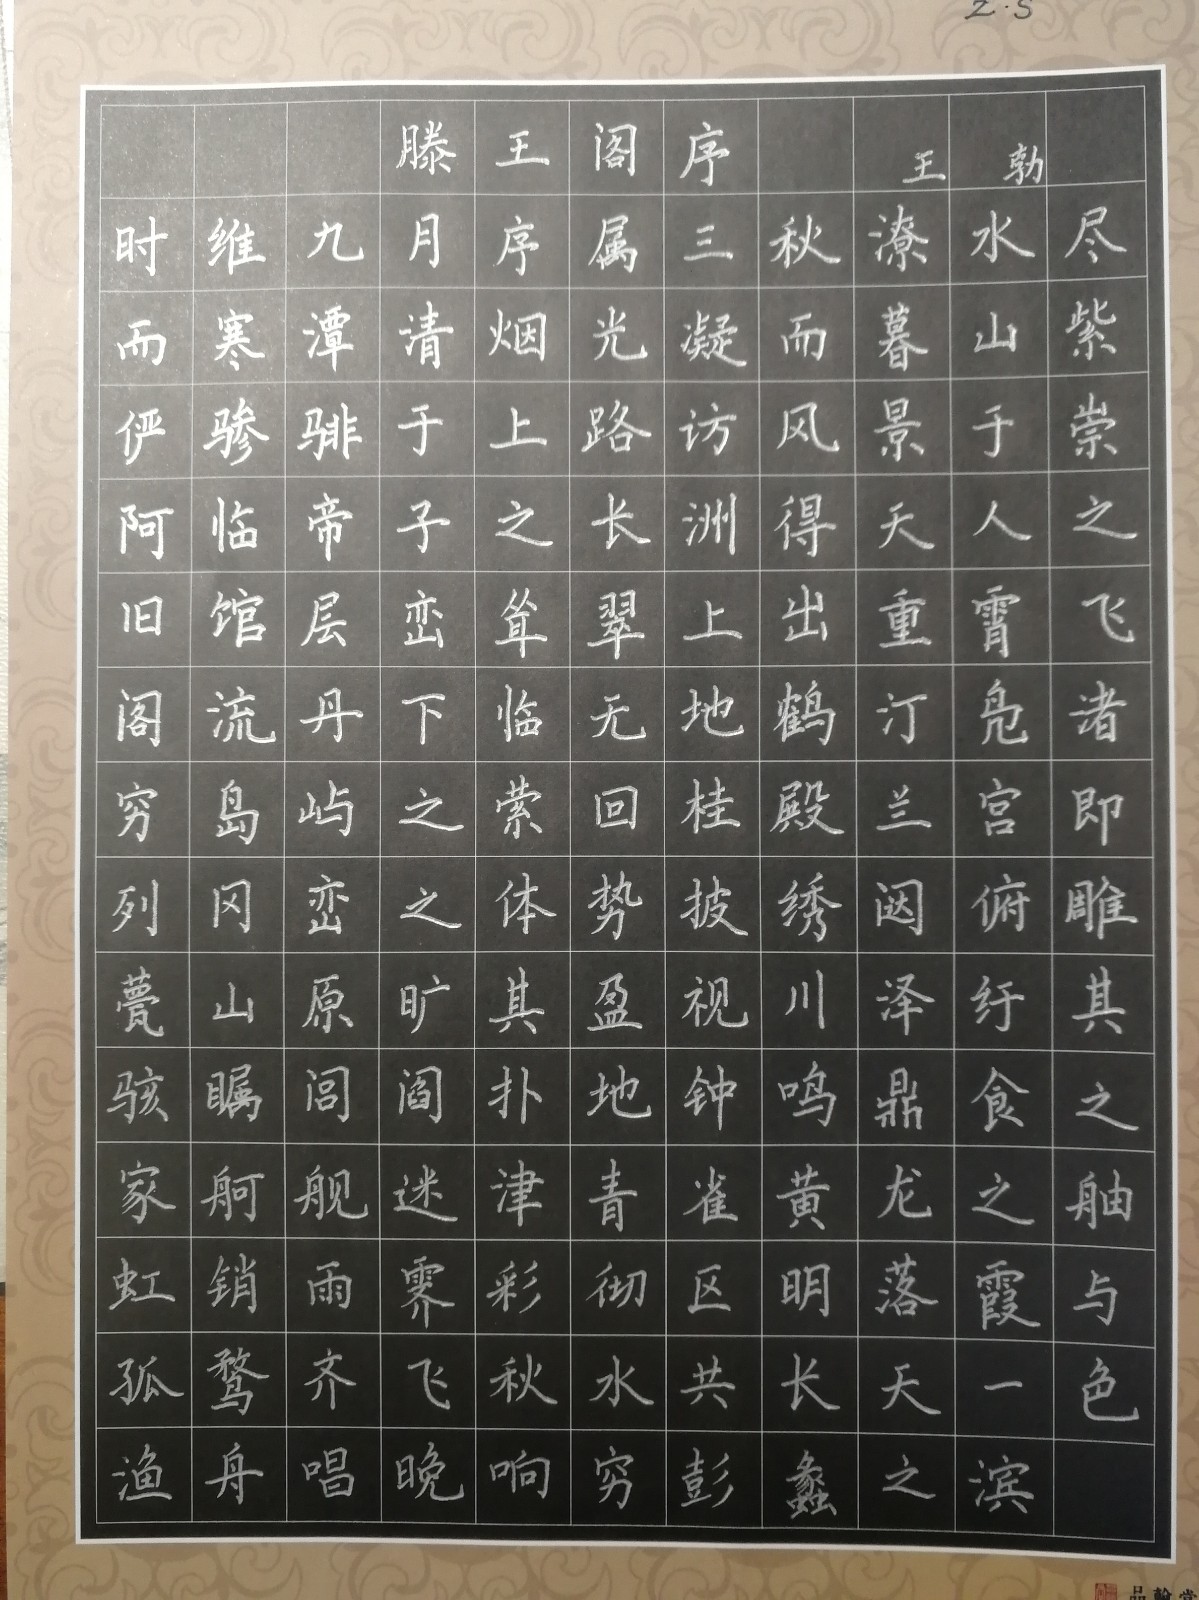 Z·S
滕王阁序 王勃
时维九月序属三秋潦水尽
而寒潭清烟光凝而暮山紫
俨骖𬴂于上路访风景于崇
阿临帝子之长洲得天人之
旧馆层峦耸翠上出重霄飞
阁流丹下临无地鹤汀凫渚
穷岛屿之萦回桂殿兰宫即
列冈峦之体势披绣闼俯雕
甍山原旷其盈视川泽纡其
骇瞩闾阎扑地钟鸣鼎食之
家舸舰迷津青雀黄龙之舳
虹销雨霁彩彻区明落霞与
孤鹜齐飞秋水共长天一色
渔舟唱晚响穷彭蠡之滨
品翰堂